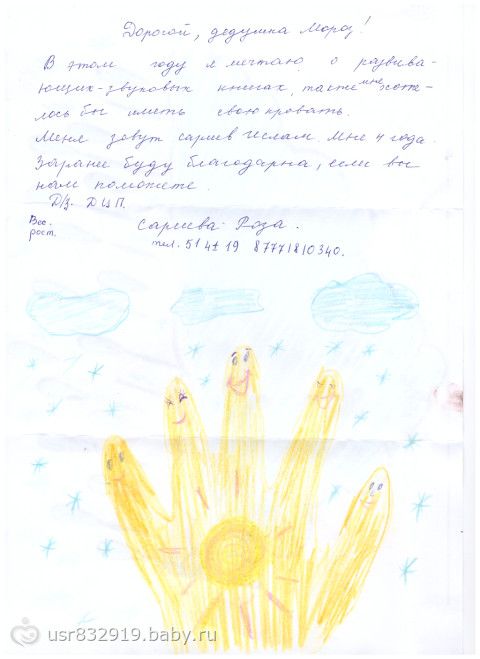 Дорогой, дедушка Мороз!
В этом году я мечтаю о развива-
ющих-звуковых книгах, также мне хоте-
лось бы иметь свою кровать.
Меня зовут Сариев Ислам. Мне 4 года.
Заранее буду благодарна, если вы
нам поможете.
Д/з. ДЦП.
Вес.
рост.
Сариева Роза.
тел. 51 41 19 8777
usr832919.baby.ru